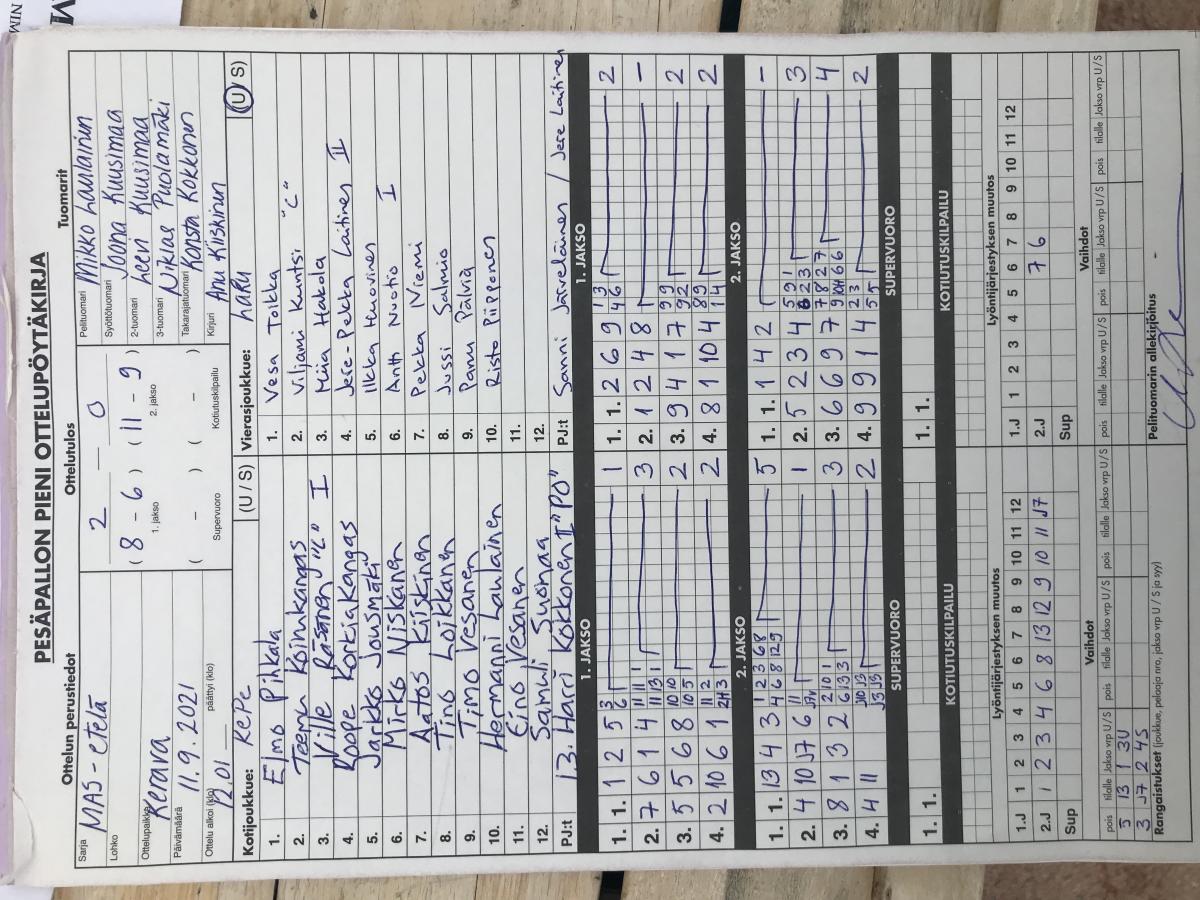 PESÄPALLON PIENI OTTELUPÖYTÄKIRJA
Ottelun perustiedot
Sarja MAS - etelä
Lohko
Ottelupaikka Kerava
Päivämäärä 11.9.2021
Ottelu alkoi (klo) 12.01 päättyi (klo)
Ottelutulos
2 — 0
( 8 - 6 ) ( 11 - 9 )
1. jakso 2. jakso
( - ) ( - )
Supervuoro Kotiutuskilpailu
Tuomarit
Pelituomari Mikko Laulainen
Syöttötuomari Joona Kuusimaa
2-tuomari Leevi Kuusimaa
3-tuomari Niklas Puolamäki
Takarajatuomari Konsta Kokkonen
Kirjuri Anu Kiiskinen
Kotijoukkue: KePe (U / S)
1. Elmo Pikala
2. Teemu Koivukangas
3. Ville Räsänen "C" I
4. Roope Korkiakangas
5. Jarkko Jousmäki
6. Mirko Niskanen
7. Aatos Kiiskinen
8. Tino Loikkanen
9. Timo Vesanen
10. Hermanni Laulainen
11. Eino Vesanen
12. Samuli Suonaa
PJ:t 13. Harri Kokkonen II "PO"
Vierasjoukkue: LaKu (U / S)
1. Vesa Tolkka
2. Viljami Kuntsi "C"
3. Miia Hakola
4. Jere-Pekka Laitinen II
5. Ilkka Huovinen
6. Antti Nuotio I
7. Pekka Niemi
8. Jussi Salmio
9. Panu Päiviä
10. Risto Piipponen
11.
12.
PJ:t Sanni Järveläinen / Jere Laitinen
1. JAKSO
1. 1. 1 2 5 3 6 1 1
2. 7 6 1 4 11 11 1 11 13 1 3
3. 5 5 6 8 10 10 10 5 2
4. 2 10 6 1 11 2 2
1. JAKSO
1. 1. 2 6 9 1 3 4 6 2
2. 1 2 4 8 -
3. 9 4 1 7 9 9 9 2 2
4. 8 1 10 4 8 9 1 4 2
2. JAKSO
1. 1. 13 4 3 1 2 3 6 8 4 6 8 12 9 5
2. 4 10 J7 6 11 1
3. 8 1 3 2 2 10 1 6 13 3 3
4. 4 11 J10 J3 J3 J5 2
2. JAKSO
1. 1. 1 4 2 -
2. 5 2 3 4 5 9 1 6 2 3 3
3. 6 6 9 7 7 8 2 7 4
4. 9 9 1 4 2 3 5 5 2
SUPERVUORO
1. 1.
SUPERVUORO
1. 1.
KOTIUTUSKILPAILU
KOTIUTUSKILPAILU
Lyöntijärjestyksen muutos
1.J 1 2 3 4 5 6 7 8 9 10 11 12
2.J 1 2 3 4 6 8 13 12 9 10 11 J7
Sup
Lyöntijärjestyksen muutos
1.J 1 2 3 4 5 6 7 8 9 10 11 12
2.J 7 6
Sup
Vaihdot
pois tilalle Jakso vrp U / S pois tilalle Jakso vrp U / S pois tilalle Jakso vrp U / S
5 13 1 3U
3 J7 2 4S
Vaihdot
pois tilalle Jakso vrp U / S pois tilalle Jakso vrp U / S pois tilalle Jakso vrp U / S
Rangaistukset (joukkue, pelaaja nro, jakso vrp U / S ja syy)
Pelituomarin allekirjoitus
NIM